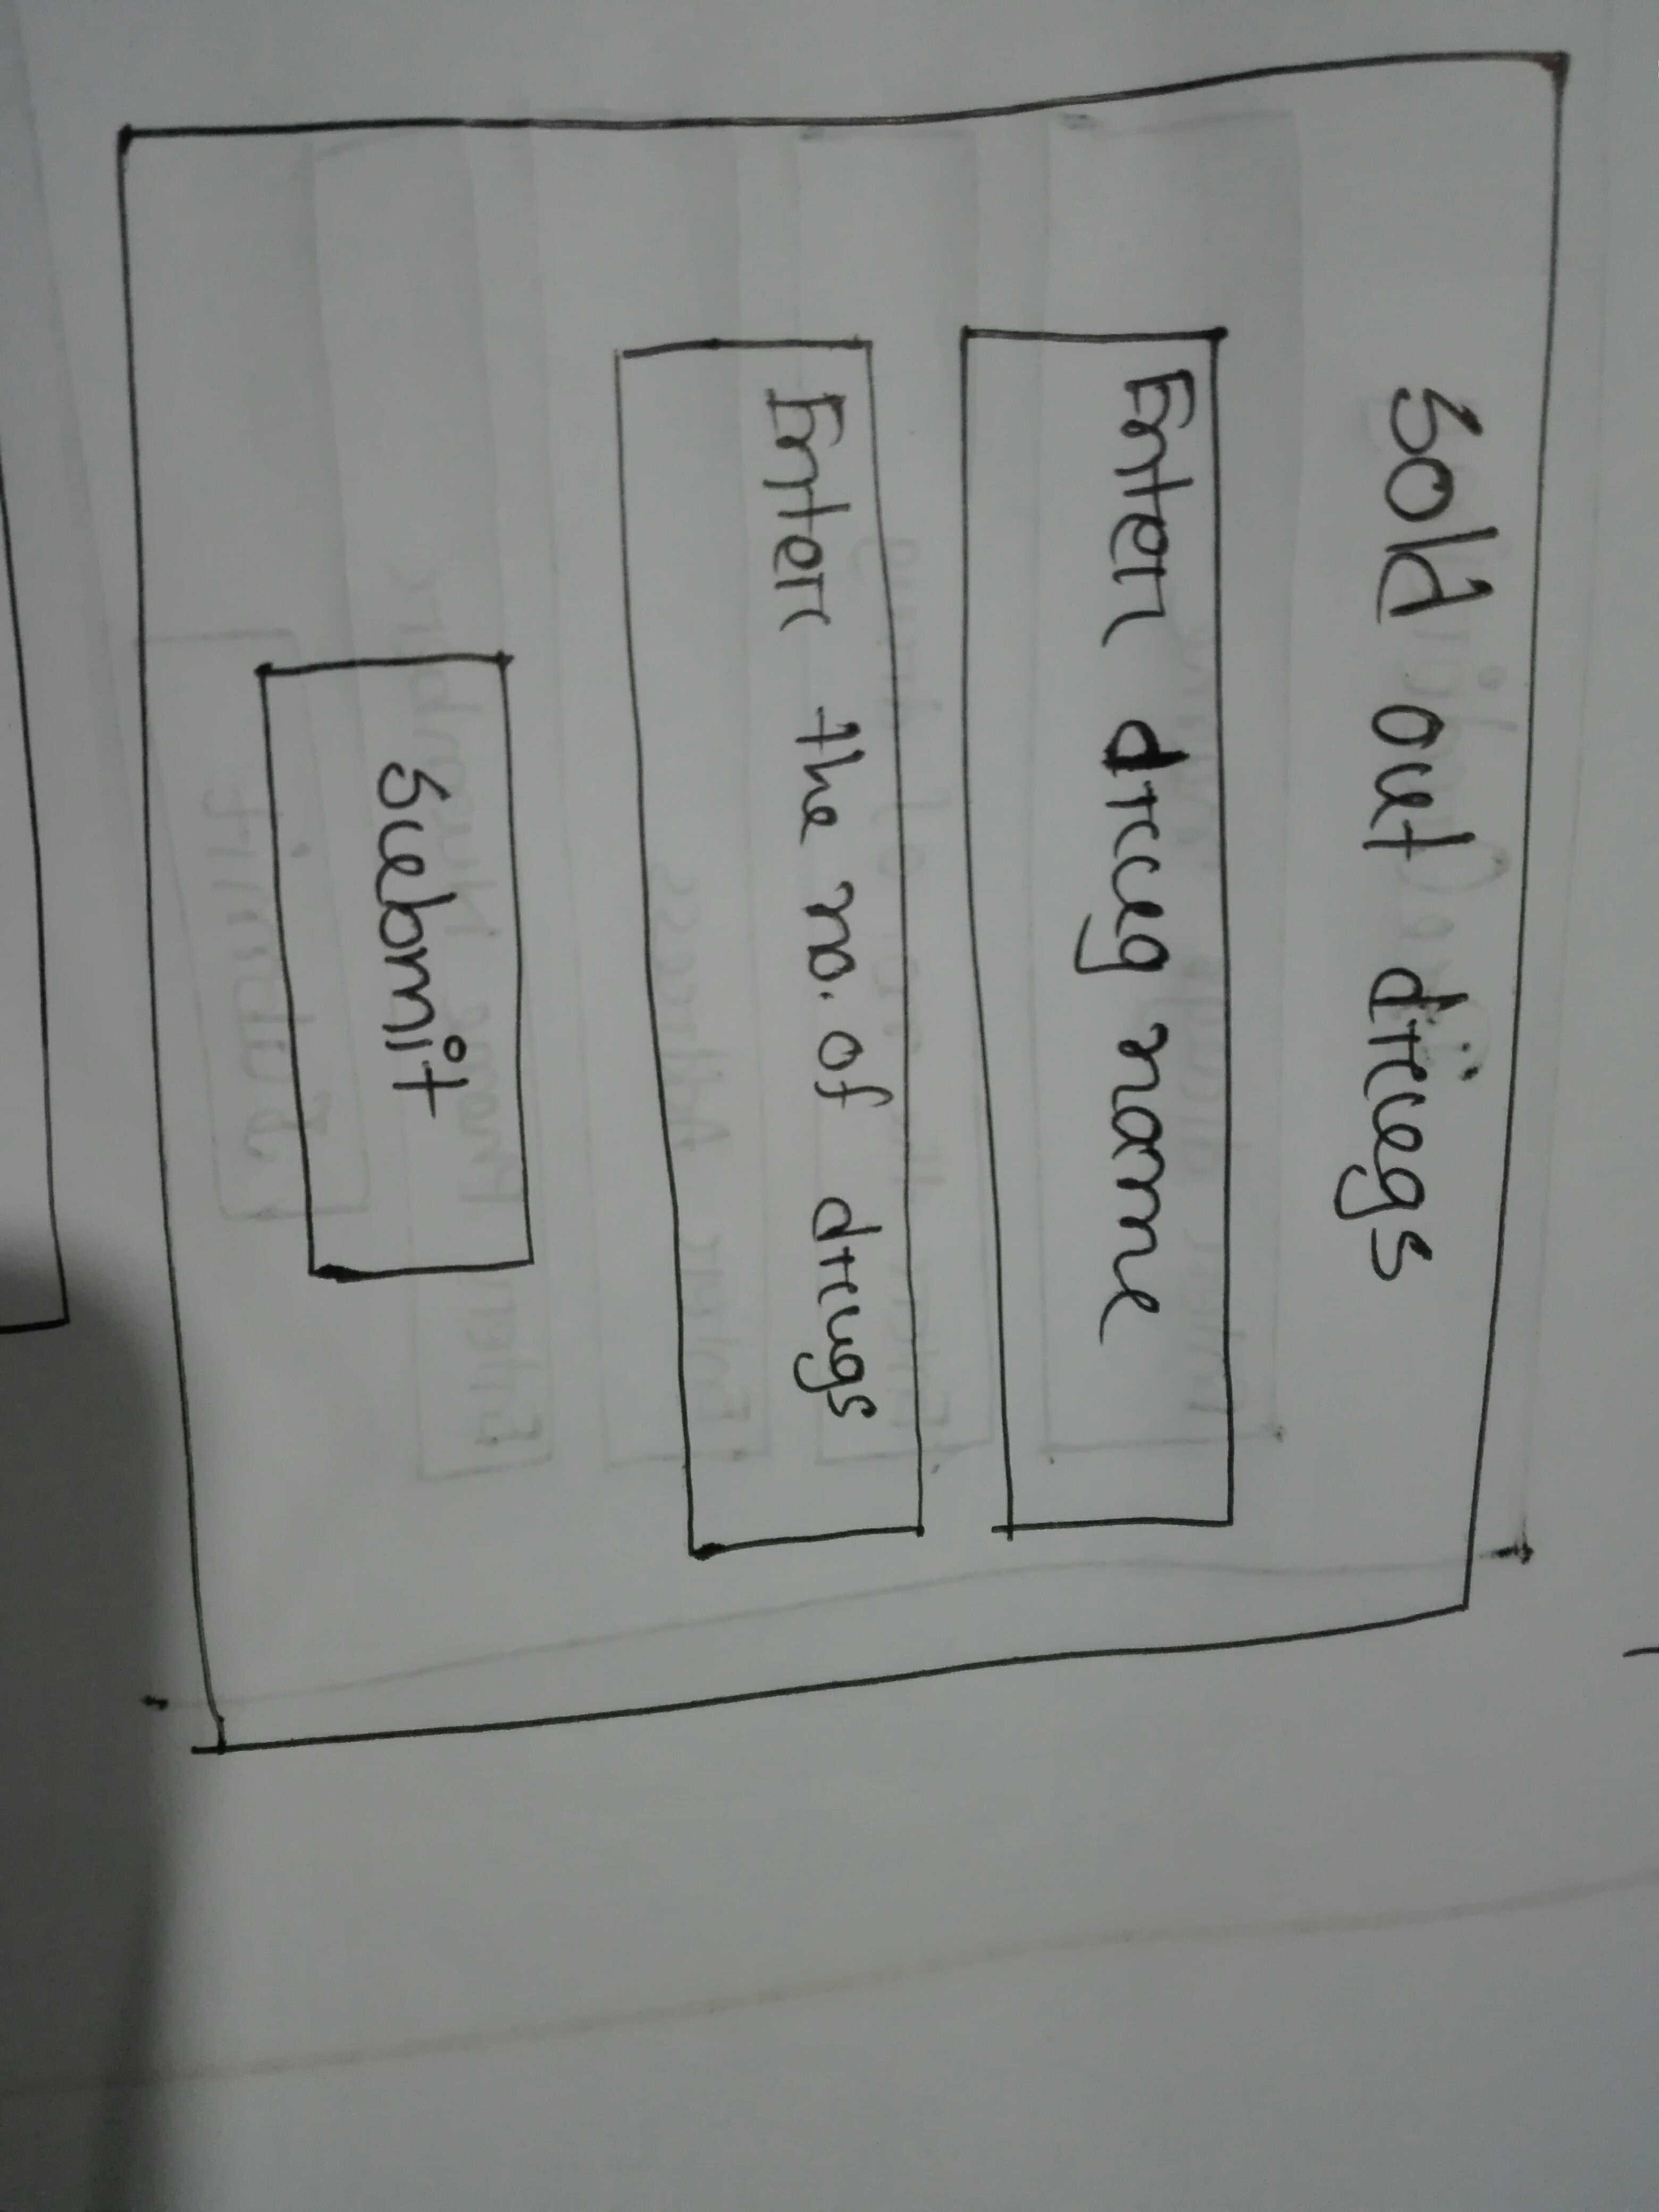 Sold out drugs
Enter drug name
Enter the no. of drugs
Submit